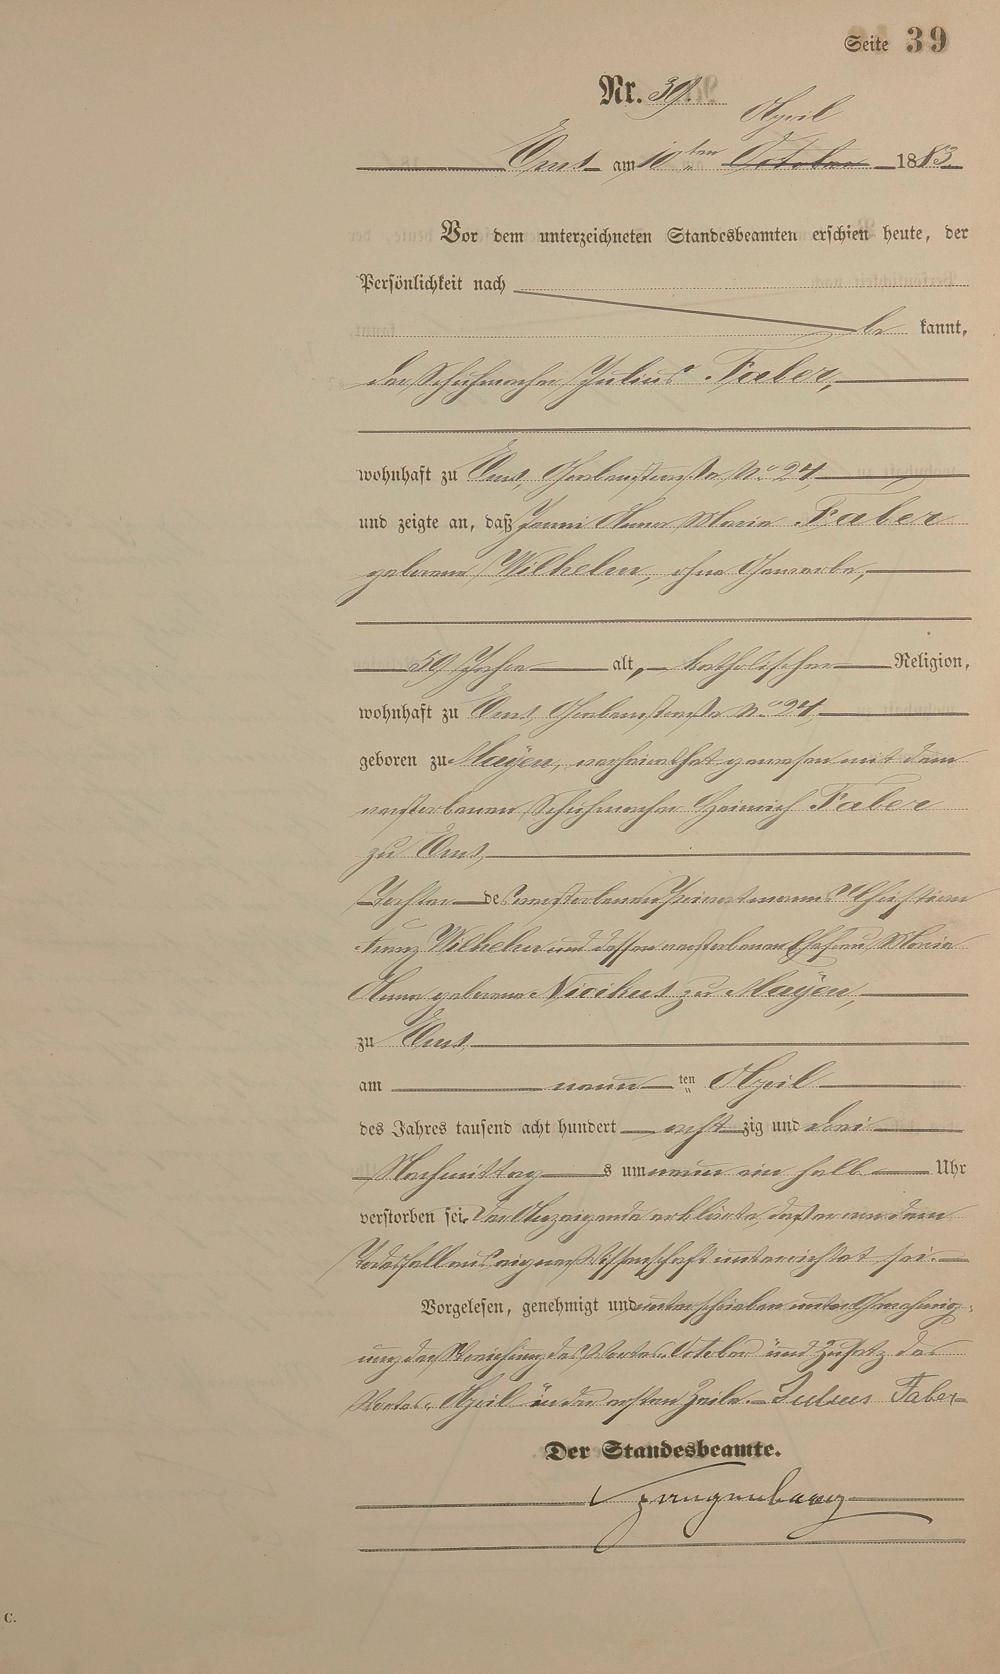 Seite 39
Nr. 39.
April
Ems am 10ten October 1883
Vor dem unterzeichneten Standesbeamten erschien heute, der
Persönlichkeit nach
be kannt,
der Schuhmacher Julius Faber,
wohnhaft zu Ems, Grabenstraße No 24,
und zeigte an, daß Anna Maria Faber
geborene Wilhelm, ohne Gewerbe,
59 Jahre alt, katholischer Religion,
wohnhaft zu Ems, Grabenstraße No 24,
geboren zu Mayen, verheirathet gewesen mit dem
verstorbenen Schuhmacher Heinrich Faber
zu Ems,
Tochter des verstorbenen Christian
Franz Wilhelm und dessen verstorbenen Ehefrau Maria
Anna geborene zu Mayen,
zu Ems
am neun ten April
des Jahres tausend acht hundert acht zig und drei
Nachmittag s um neun ein halb Uhr
verstorben sei. Der Anzeigende erklärte, daß er von dem
Todesfall aus eigner Wissenschaft unterrichtet sei.
Vorgelesen, genehmigt und unterschrieben unter Genehmig-
ung der Streichung des Wortes "October" und Zusatz des
Wortes "April" in der ersten Zeile. Julius Faber
Der Standesbeamte.
C.